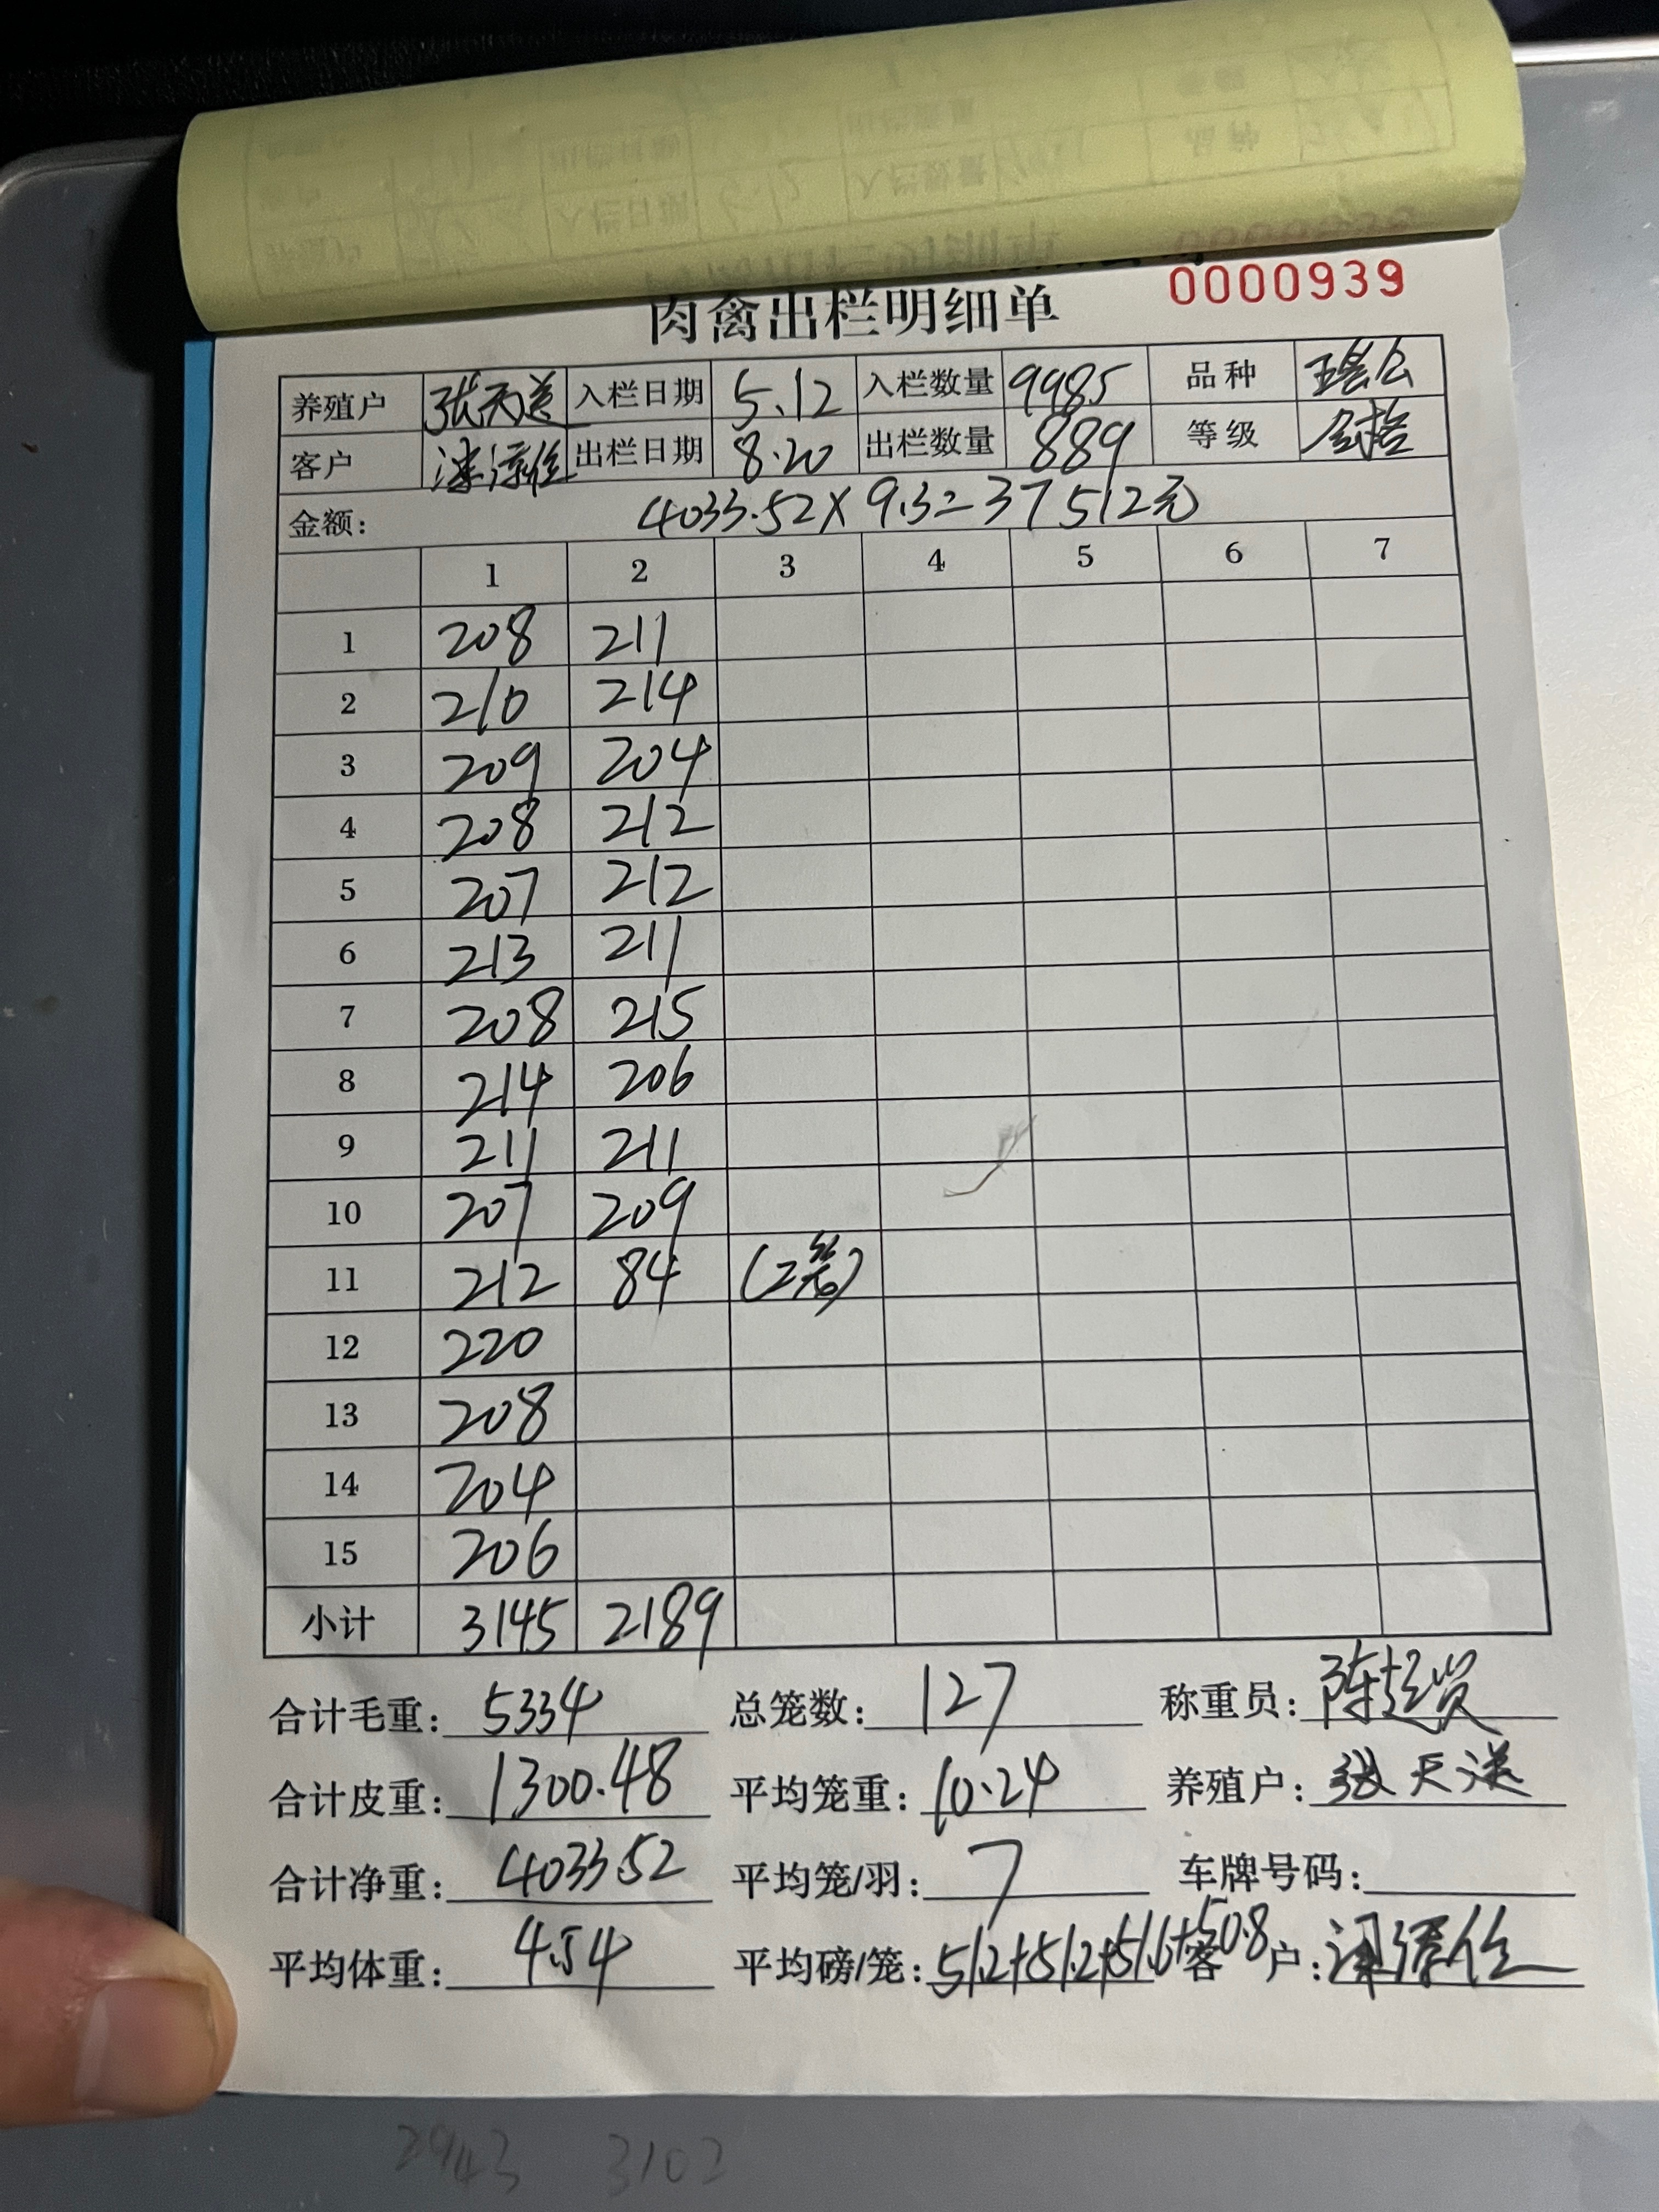 0000939
肉禽出栏明细单
养殖户 张天送 入栏日期 5.12 入栏数量 9985 品种
客户 出栏日期 8.20 出栏数量 889 等级
金额: 4033.52×9.3=37512元
1 2 3 4 5 6 7
1 208 211
2 210 214
3 209 204
4 208 212
5 207 212
6 213 211
7 208 215
8 214 206
9 211 211
10 207 209
11 212 84 (2笼)
12 220
13 208
14 204
15 206
小计 3145 2189
合计毛重: 5334 总笼数: 127 称重员: 陈超贤
合计皮重: 1300.48 平均笼重: 10.24 养殖户: 张天送
合计净重: 4033.52 平均笼/羽: 7 车牌号码:
平均体重: 4.54 平均磅/笼: 51.2+51.2+51.6+50.8 客户:
2943 3102